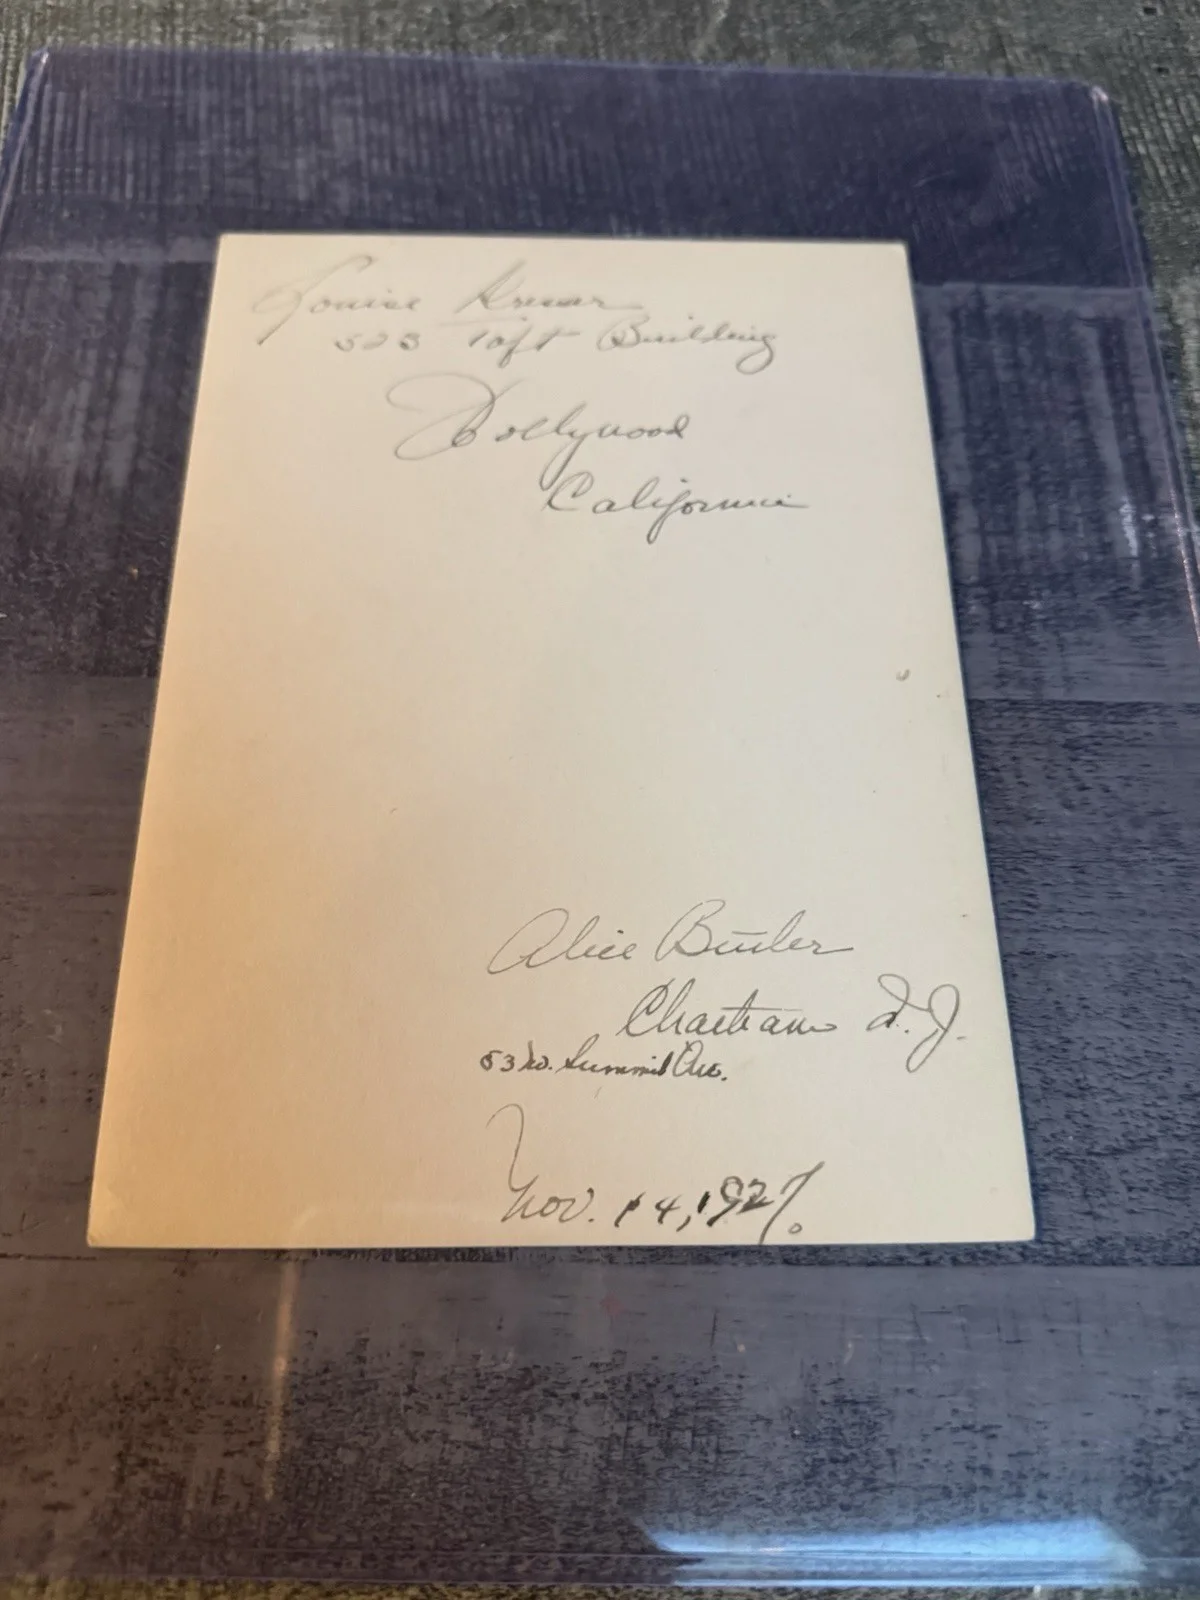 Louise
523 Taft Building
Hollywood
California
Alice Butler
Chatham N.J.
53 No. Summit Ave.
Nov. 14, 1927.